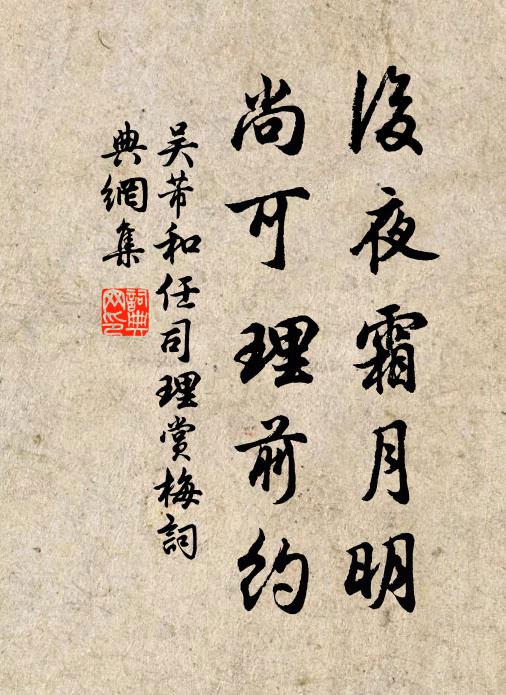 後夜霜月明
尚可理前約
吴芾和任司理赏梅詞
典網集
詞典
网印